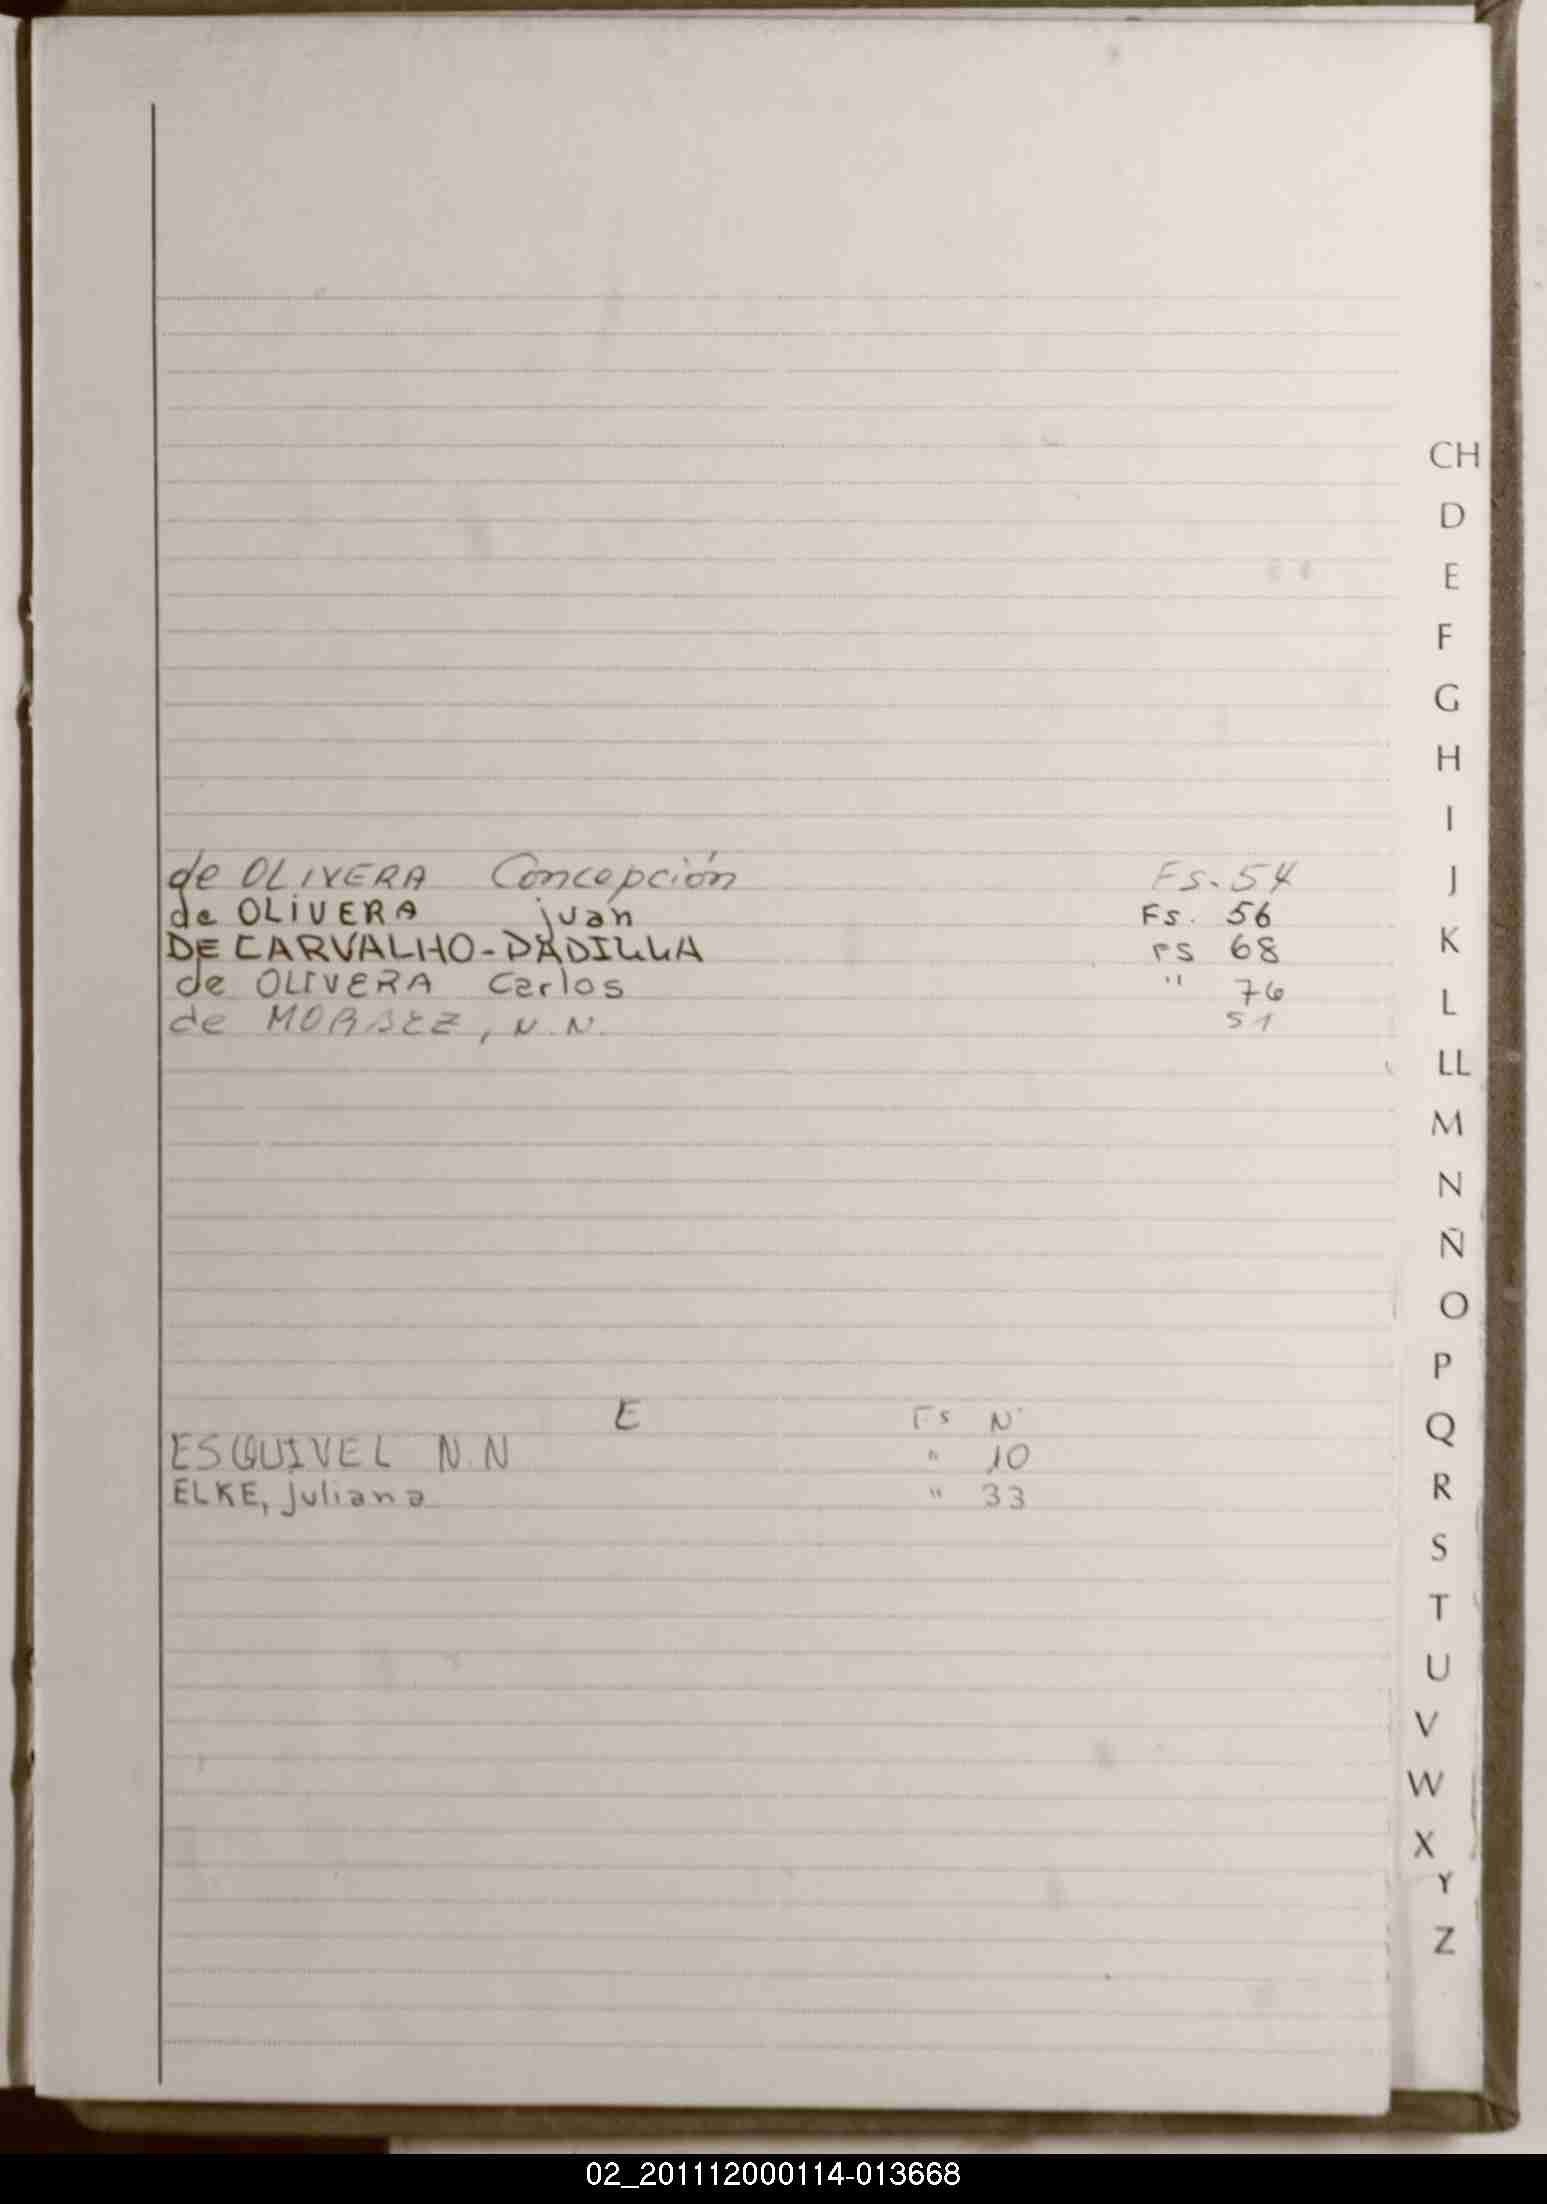 de OLIVERA Concepción Fs. 54
de OLIVERA juan Fs. 56
DE CARVALHO-DADILLA Fs 68
de OLIVERA Carlos " 76
de , N.N. 51
E Fs N°
ESQUIVEL N.N " 10
ELKE, juliana " 33
CH
D
E
F
G
H
I
J
K
L
LL
M
N
Ñ
O
P
Q
R
S
T
U
V
W
X
Y
Z
02_201112000114-013668